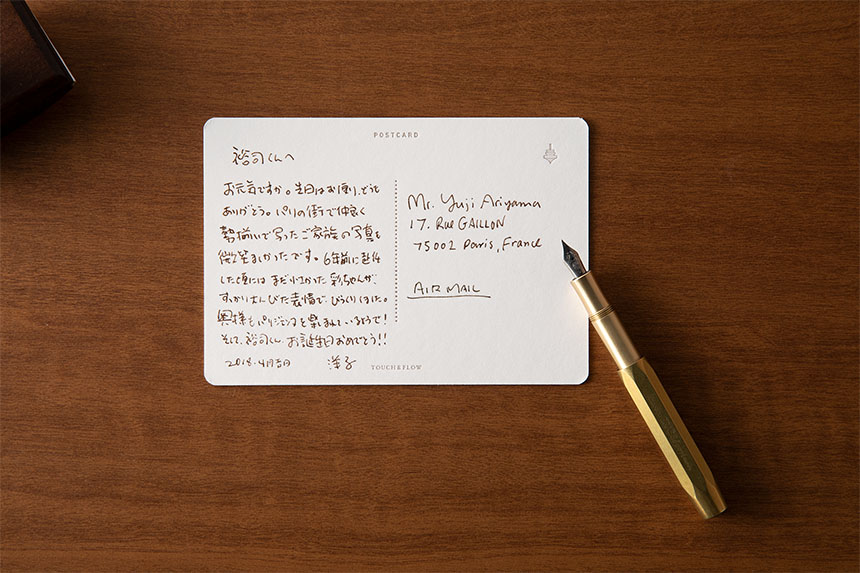 POSTCARD
裕司くんへ
お元気ですか。先日はお便り、とても
ありがとう。パリの街で仲良く
勢揃いで写ったご家族の写真を
微笑ましかったです。6年前に赴任
した頃には まだ小さかった 彩ちゃんが、
すっかり大人びた表情で、びっくりしました。
奥様もパリジェンヌを楽しまれているようで!
そして、裕司くん、お誕生日おめでとう!!
2018.4月吉日 洋子
Mr. Yuji Ariyama
17. Rue GAILLON
75002 Paris, France
AIR MAIL
TOUCH&FLOW